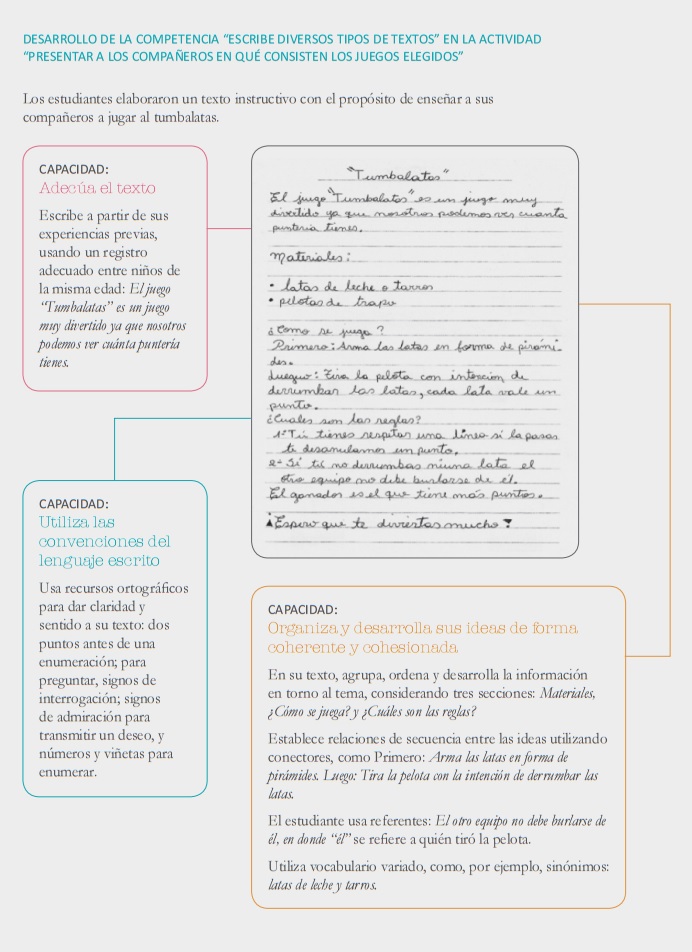 DESARROLLO DE LA COMPETENCIA “ESCRIBE DIVERSOS TIPOS DE TEXTOS” EN LA ACTIVIDAD
“PRESENTAR A LOS COMPAÑEROS EN QUÉ CONSISTEN LOS JUEGOS ELEGIDOS”
Los estudiantes elaboraron un texto instructivo con el propósito de enseñar a sus
compañeros a jugar al tumbalatas.
CAPACIDAD:
Adecúa el texto
Escribe a partir de sus
experiencias previas,
usando un registro
adecuado entre niños de
la misma edad: El juego
“Tumbalatas” es un juego
muy divertido ya que nosotros
podemos ver cuánta puntería
tienes.
"Tumbalatas"
El juego "Tumbalatas" es un juego muy
divertido ya que nosotros podemos ver cuanta
puntería tienes.
Materiales:
• latas de leche o tarros
• pelotas de trapo
¿Como se juega?
Primero: Arma las latas en forma de pirámi-
des.
Lueguo: Tira la pelota con intención de
derrumbar las latas, cada lata vale un
punto.
¿Cuales son las reglas?
1º Tú tienes respetar una línea si la pasas
te desanulamos un punto.
2º Si tú no derrumbas niuna lata el
otro equipo no debe burlarse de él.
El ganador es el que tiene más puntos.
¡Espero que te diviertas mucho!
CAPACIDAD:
Utiliza las
convenciones del
lenguaje escrito
Usa recursos ortográficos
para dar claridad y
sentido a su texto: dos
puntos antes de una
enumeración; para
preguntar, signos de
interrogación; signos
de admiración para
transmitir un deseo, y
números y viñetas para
enumerar.
CAPACIDAD:
Organiza y desarrolla sus ideas de forma
coherente y cohesionada
En su texto, agrupa, ordena y desarrolla la información
en torno al tema, considerando tres secciones: Materiales,
¿Cómo se juega? y ¿Cuáles son las reglas?
Establece relaciones de secuencia entre las ideas utilizando
conectores, como Primero: Arma las latas en forma de
pirámides. Luego: Tira la pelota con la intención de derrumbar las
latas.
El estudiante usa referentes: El otro equipo no debe burlarse de
él, en donde “él” se refiere a quién tiró la pelota.
Utiliza vocabulario variado, como, por ejemplo, sinónimos:
latas de leche y tarros.